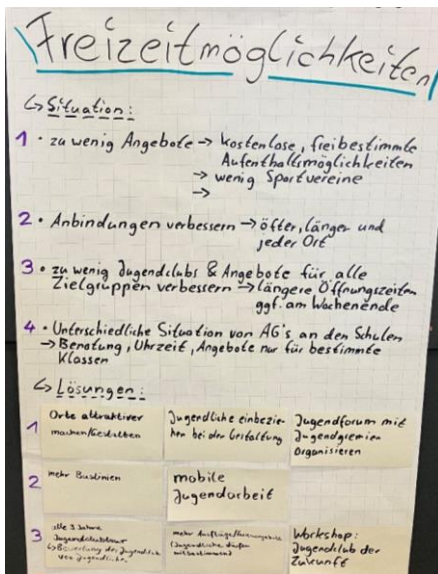 Freizeitmöglichkeiten
↳ Situation:
1 • zu wenig Angebote → kostenlose, freibestimmte
Aufenthaltsmöglichkeiten
→ wenig Sportvereine
→
2 • Anbindungen verbessern → öfter, länger und
jeder Ort
3 • zu wenig Jugendclubs & Angebote für alle
Zielgruppen verbessern → längere Öffnungszeiten
ggf. am Wochenende
4 • Unterschiedliche Situation von AG's an den Schulen
→ Beratung, Uhrzeit, Angebote nur für bestimmte
Klassen
↳ Lösungen:
1
Orte attraktiver
machen/Gestalten
Jugendliche einbezie-
hen bei der Gestaltung
Jugendforum mit
Jugendgremien
Organisieren
2
mehr Buslinien
mobile
Jugendarbeit
3
alle 3 Jahre
Jugendclubtour
↳ Bewertung der Jugendclubs
von Jugendliche
mehr Ausflüge/
(Jugendliche dürfen
mitbestimmen)
Workshop:
Jugendclub der
Zukunft